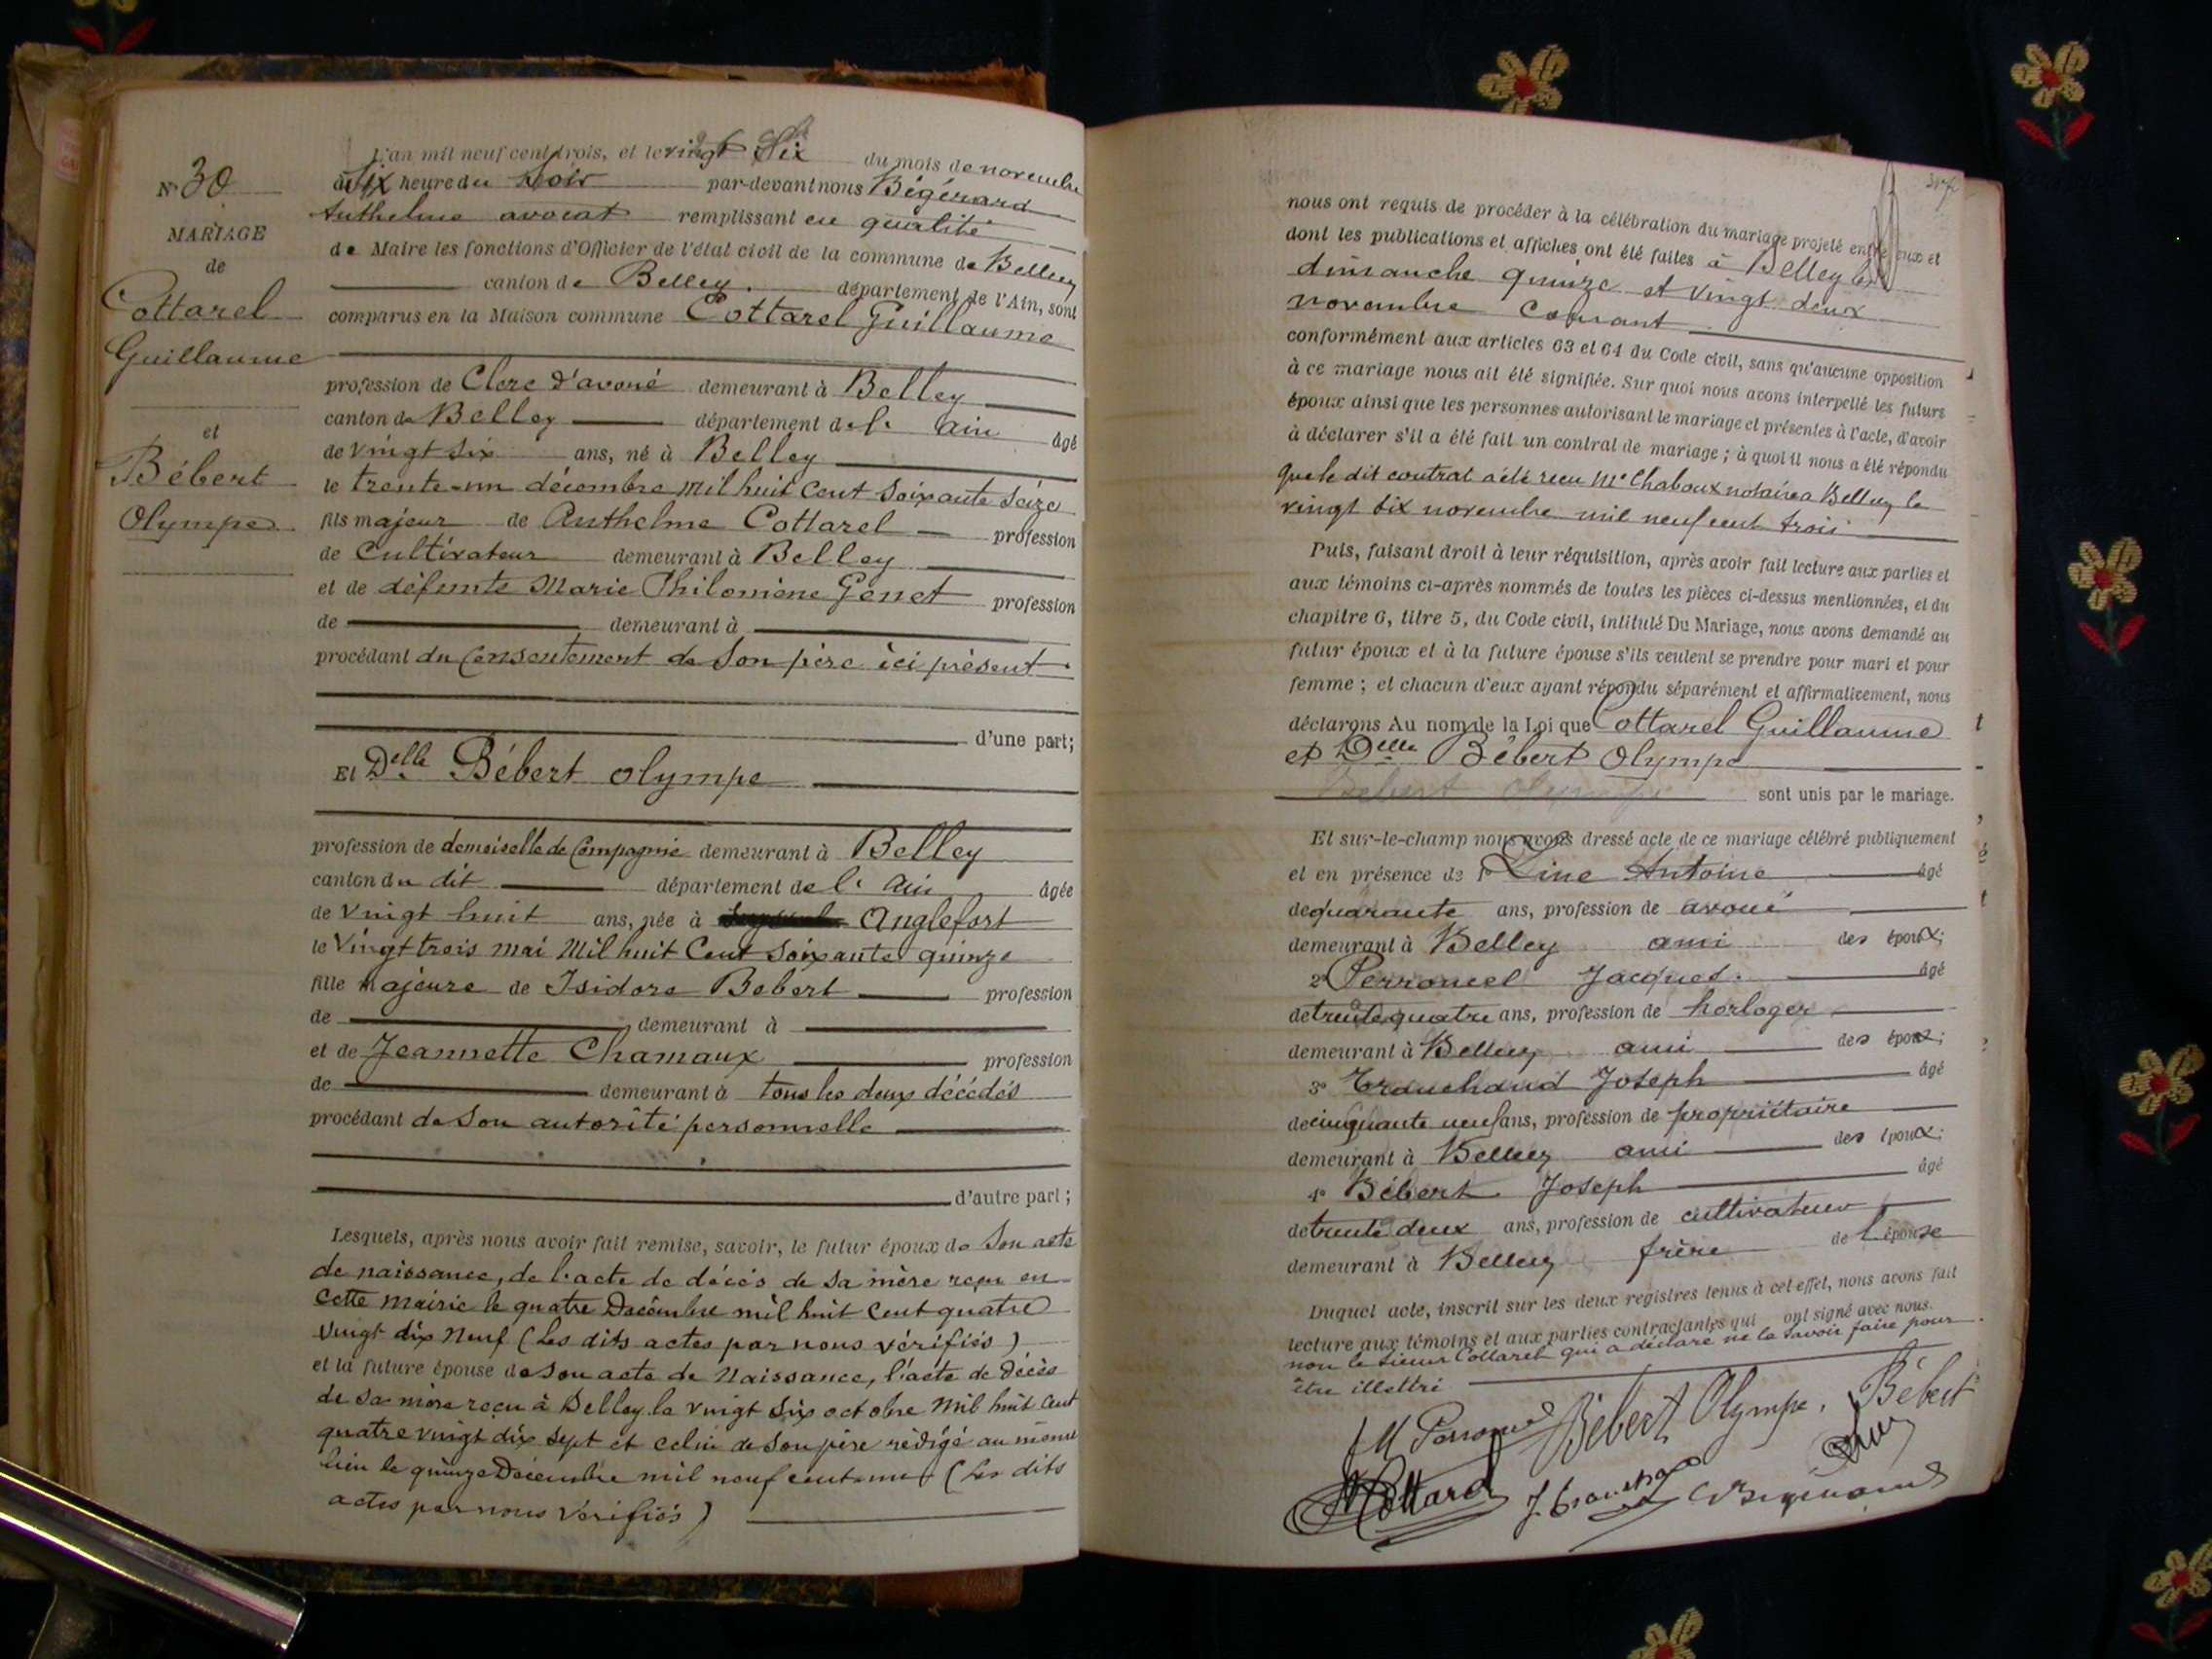 N° 30
MARIAGE
de
Cottarel
Guillaume
et
Bébert
Olympe
L'an mil neuf cent trois, et le vingt Six du mois de novembre
à Six heure du Soir par-devant nous Bégérard
Anthelme avocat remplissant en qualité
de Maire les fonctions d'Officier de l'état civil de la commune de Belley
canton de Belley. département de l'Ain, sont
comparus en la Maison commune Cottarel Guillaume
profession de Clerc d'avoué demeurant à Belley
canton de Belley département de l' ain âgé
de vingt six ans, né à Belley
le trente-un décembre mil huit cent soixante seize
fils majeur de Anthelme Cottarel profession
de Cultivateur demeurant à Belley
et de défunte Marie Philomène Genet profession
de demeurant à
procédant du Consentement de Son père ici présent.
d'une part;
Et Delle Bébert olympe
profession de demoiselle de Compagnie demeurant à Belley
canton du dit département de l' ain âgée
de vingt huit ans, née à Anglefort
le vingt trois mai Mil huit Cent soixante quinze
fille Majeure de Isidore Bebert profession
de demeurant à
et de Jeannette Chamaux profession
de demeurant à tous les deux décédés
procédant de Son autorité personnelle
d'autre part;
Lesquels, après nous avoir fait remise, savoir, le futur époux de Son acte
de naissance, de l'acte de décès de sa mère reçu en
cette mairie le quatre Décembre mil huit cent quatre
vingt dix neuf (Les dits actes par nous vérifiés)
et la future épouse de son acte de Naissance, l'acte de décès
de sa mère reçu à Belley le vingt six octobre Mil huit Cent
quatre vingt dix sept et celui de son père rédigé au même
lieu le quinze Décembre mil neuf cent un (Les dits
actes par nous vérifiés)
nous ont requis de procéder à la célébration du mariage projeté entre eux et
dont les publications et affiches ont été faites à Belley les
dimanche quinze et vingt deux
novembre Courant
conformément aux articles 63 et 64 du Code civil, sans qu'aucune opposition
à ce mariage nous ait été signifiée. Sur quoi nous avons interpellé les futurs
époux ainsi que les personnes autorisant le mariage et présentes à l'acte, d'avoir
à déclarer s'il a été fait un contrat de mariage; à quoi il nous a été répondu
que le dit contrat a été reçu Me Chaboux notaire a Belley le
vingt six novembre mil neuf cent trois
Puis, faisant droit à leur réquisition, après avoir fait lecture aux parties et
aux témoins ci-après nommés de toutes les pièces ci-dessus mentionnées, et du
chapitre 6, titre 5, du Code civil, intitulé Du Mariage, nous avons demandé au
futur époux et à la future épouse s'ils veulent se prendre pour mari et pour
femme; et chacun d'eux ayant répondu séparément et affirmativement, nous
déclarons Au nom de la Loi que Cottarel Guillaume
et Delle Bébert Olympe
Bebert Olympe sont unis par le mariage.
Et sur-le-champ nous avons dressé acte de ce mariage célébré publiquement
et en présence de 1° Antoine âgé
de quarante ans, profession de avoué
demeurant à Belley ami des époux;
2° Perroncel Jacques. âgé
de trente quatre ans, profession de horloger
demeurant à Belley ami des époux;
3° Tranchand Joseph âgé
de cinquante neuf ans, profession de propriétaire
demeurant à Belley ami des époux;
4° Bébert Joseph âgé
de trente deux ans, profession de cultivateur
demeurant à Belley frère de l'épouse
Duquel acte, inscrit sur les deux registres tenus à cet effet, nous avons fait
lecture aux témoins et aux parties contractantes qui ont signé avec nous.
non le sieur Cottarel qui a déclaré ne le savoir faire pour
être illettré
Bébert Olympe. Bébert
Cottarel